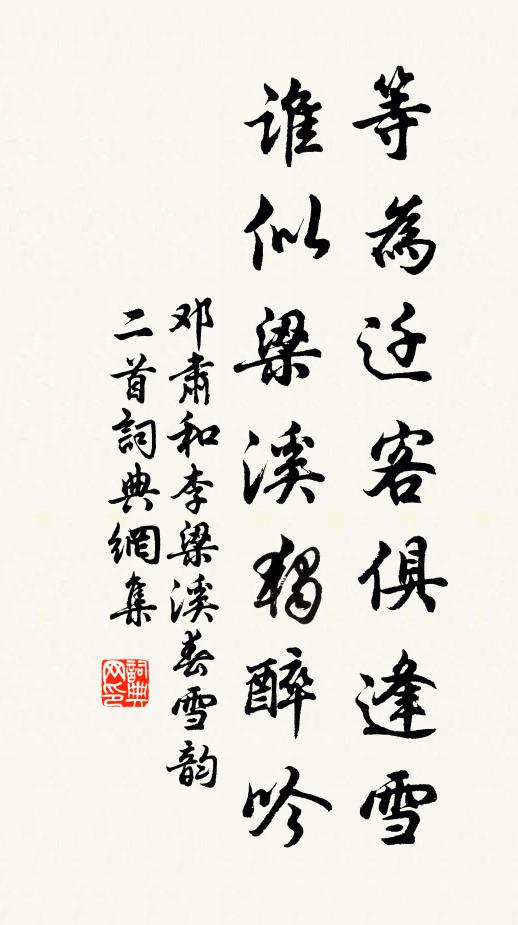 等為迁客俱逢雪
谁似梁溪独醉吟
邓肃和李梁溪春雪韵
二首詞典網集
詞典网印